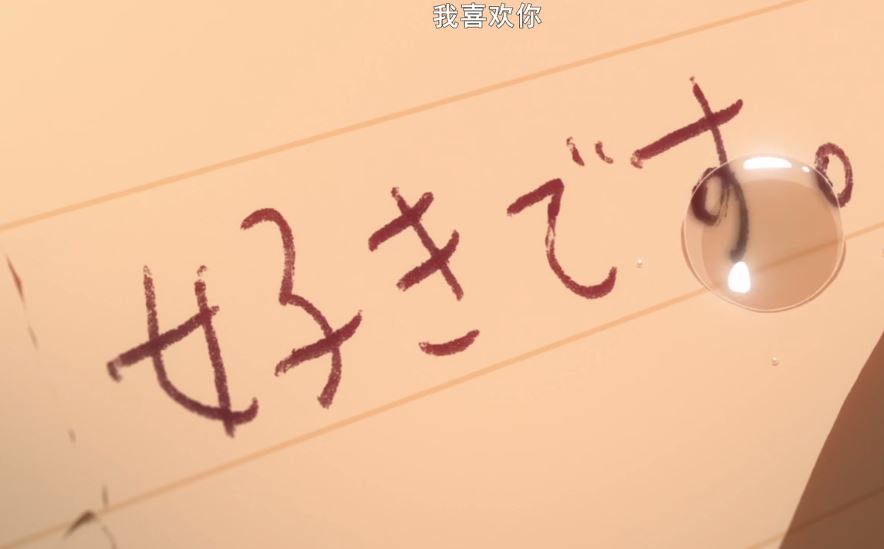 我喜欢你
好きです。